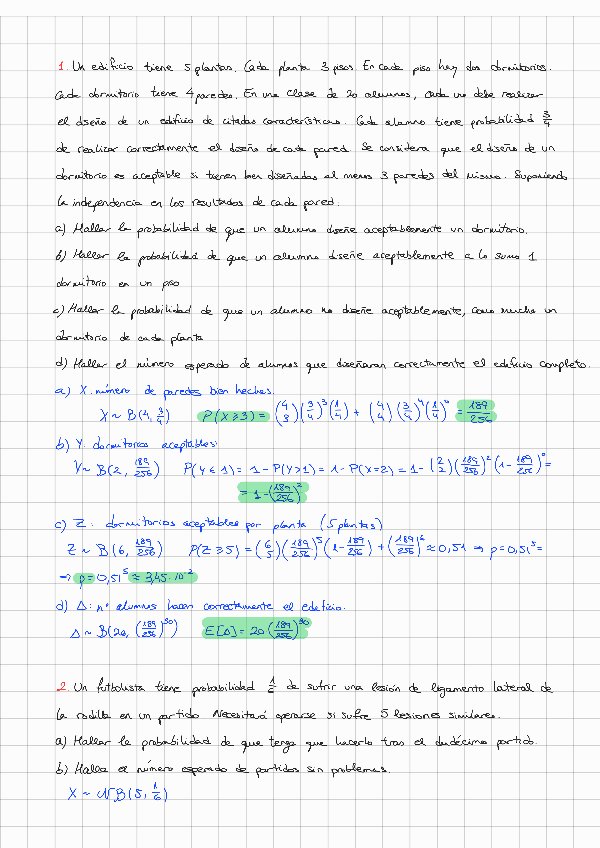 1. Un edificio tiene 5 plantas. Cada planta 3 pisos. En cada piso hay dos dormitorios.
Cada dormitorio tiene 4 paredes. En una clase de 20 alumnos, cada uno debe realizar
el diseño de un edificio de citadas características. Cada alumno tiene probabilidad 3/4
de realizar correctamente el diseño de cada pared. Se considera que el diseño de un
dormitorio es aceptable si tienen bien diseñadas al menos 3 paredes del mismo. Suponiendo
la independencia en los resultados de cada pared:
a) Hallar la probabilidad de que un alumno diseñe aceptablemente un dormitorio.
b) Hallar la probabilidad de que un alumno diseñe aceptablemente a lo sumo 1
dormitorio en un piso
c) Hallar la probabilidad de que un alumno no diseñe aceptablemente, como mucho un
dormitorio de cada planta
d) Hallar el número esperado de alumnos que diseñaran correctamente el edificio completo.
a) X: número de paredes bien hechas.
X ~ B(4, 3/4) P(X ≥ 3) = (4 3)(3/4)³(1/4) + (4 4)(3/4)⁴(1/4)⁰ = 189/256
b) Y: dormitorios aceptables:
Y ~ B(2, 189/256) P(Y ≤ 1) = 1 - P(Y > 1) = 1 - P(X = 2) = 1 - (2 2)(189/256)²(1 - 189/256)⁰ =
= 1 - (189/256)²
c) Z: dormitorios aceptables por planta (5 plantas)
Z ~ B(6, 189/256) P(Z ≥ 5) = (6 5)(189/256)⁵(1 - 189/256) + (189/256)⁶ ≈ 0,51 → p = 0,51⁵ =
→ p = 0,51⁵ ≈ 3,45 · 10⁻²
d) Δ: nº alumnos hacen correctamente el edificio.
Δ ~ B(20, (189/256)³⁰) E[Δ] = 20 (189/256)³⁰
2. Un futbolista tiene probabilidad de sufrir una lesión de ligamento lateral de
la rodilla en un partido. Necesitará operarse si sufre 5 lesiones similares.
a) Hallar la probabilidad de que tenga que hacerlo tras el duodécimo partido.
b) Halla el número esperado de partidos sin problemas.
X ~ NB(5, 1/6)